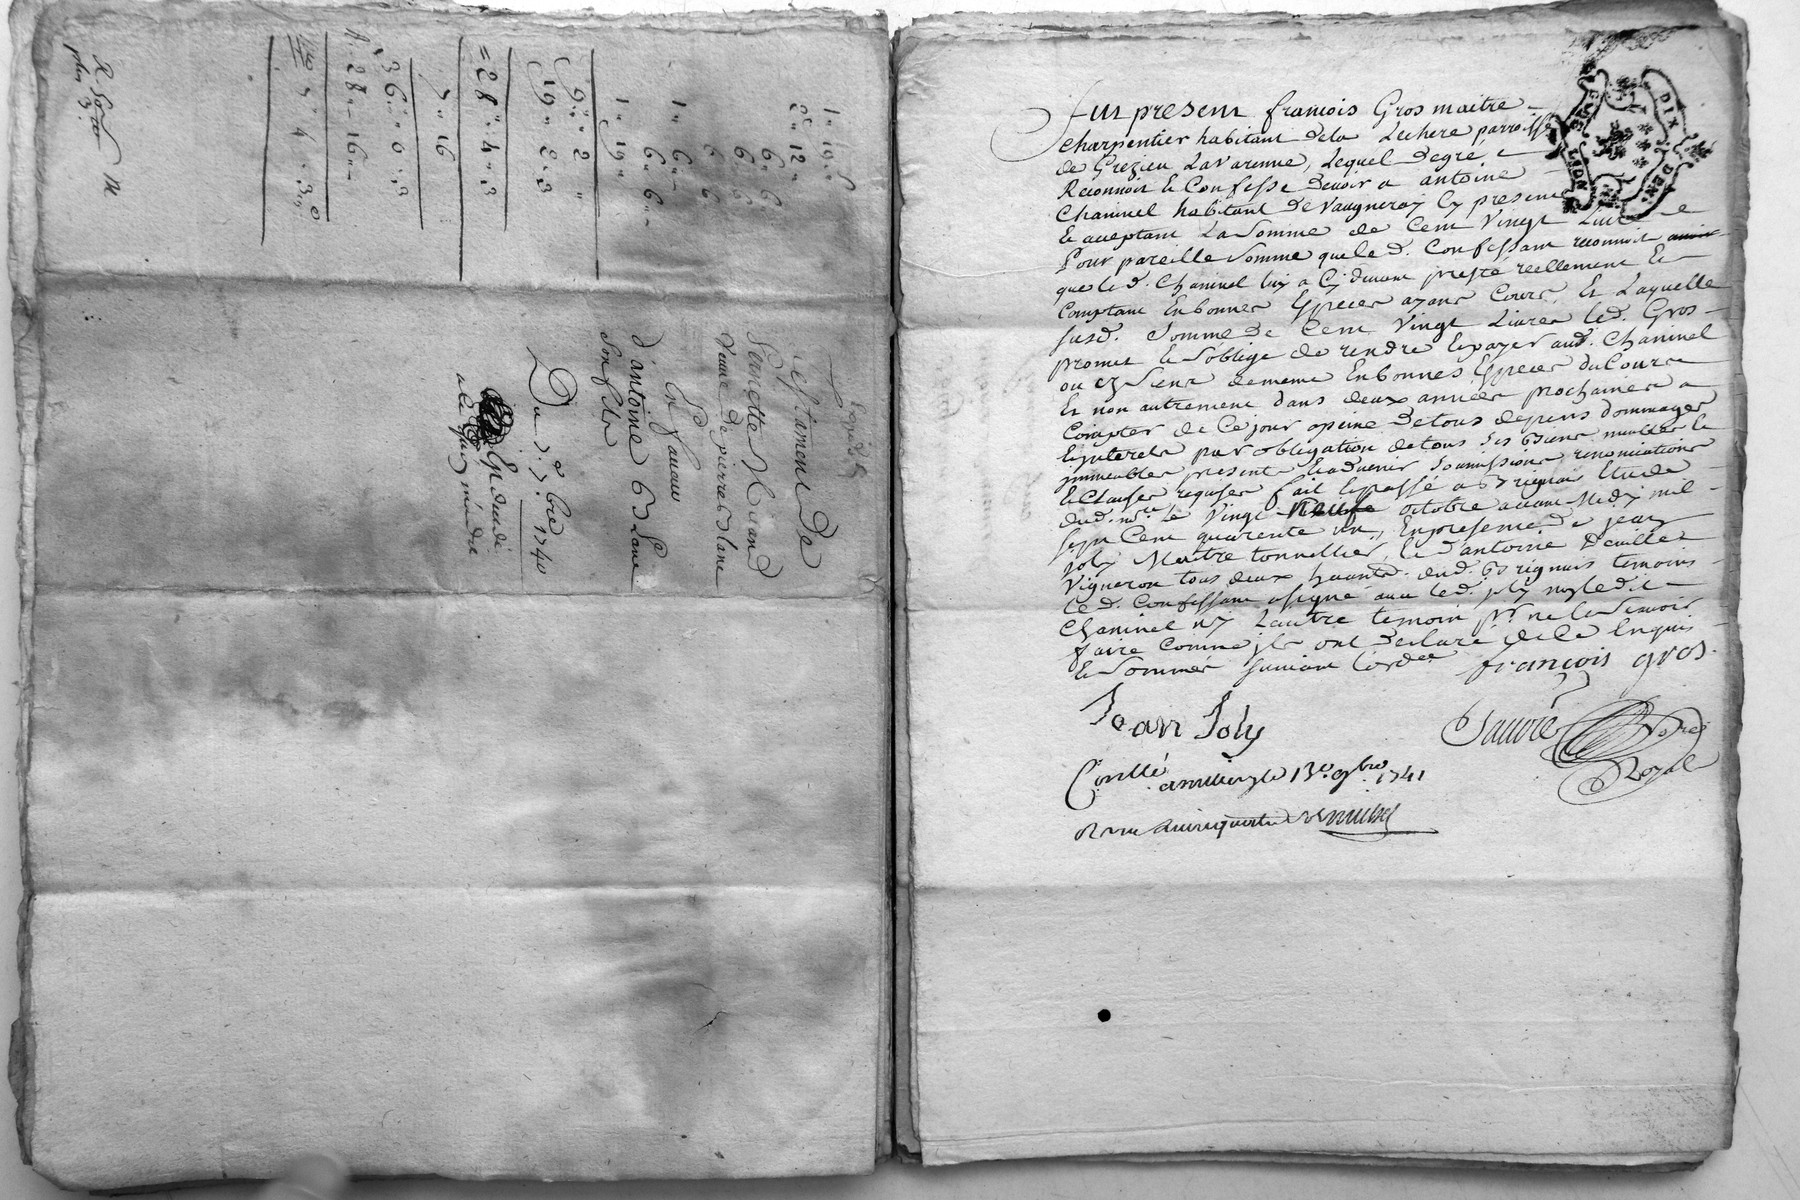 Testament de
Veuve de pierre Blanc
En faveur
d'antoine Blanc
son fils
Du 7 bre 1740
1 " 19 "
2 " 12 "
6 " 6
1 " 6 "
1 " 19 "
9 " 2 "
19 " 2 " 3
= 28 " 4 " 3
7 " 16
36 " 0 " 3
28 " 16 "
7 " 4 " 3
DIX DEN
GNE LION
fut present francois Gros maitre
charpentier habitant dela Lechere parroisse
de Grezieu Lavarenne, Lequel degré
Reconnoit et Confesse devoir a antoine
Chaninel habitant de Vaugneray Cy present
et aceptant La Somme de Cent Vingt Livre
Pour pareille Somme que le d. Confessant reconnoit
que le d. Chaninel luy a Cy devant presté réellement Et
Comptant En bonnes Especes ayant Cours, Et Laquelle
susd. Somme de Cent Vingt Livres led. Gros
promet Et Soblige de rendre Et payer aud. Chaninel
ou es Siens de meme En bonnes Especes du Cours
Et non autrement dans deux années prochaines a
Compter de Ce jour apeine de tous depens dommages
Et interets par obligation de tous ses Biens meubles Et
immeubles presents Et advenir Soumissions renonciations
Et Clauses requises fait Et passé a Brignais Etude
dud. nre. le Vingt Neufe octobre avant Midy mil
sept Cent quarente un, En presence de jean
joly Maitre tonnellier, Et d'antoine
Vigneron tous deux habitants dud. Brignais temoins
Le d. Confessant a signé avec led. joly non ledit
Chaninel ny Lautre temoin pr. ne le Scavoir
faire Comme ils ont Declaré de Ce Enquis
Et Sommés suivant Lordce
françois gros
Jean Joly
Sauvré Nore Royal
Conllé a millery le 13e 9bre 1741